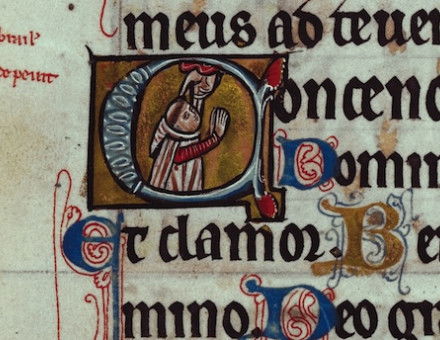 meus ad te uen
Concen
Domin
Et clamor. Be
mino. Deo gr